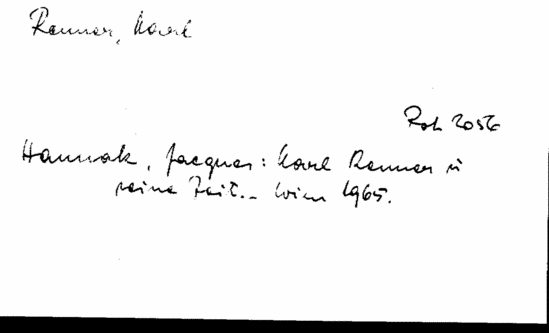 Renner, Karl
Rok 2056
Hannak, Jacques: Karl Renner u
seine Zeit.- Wien 1965.